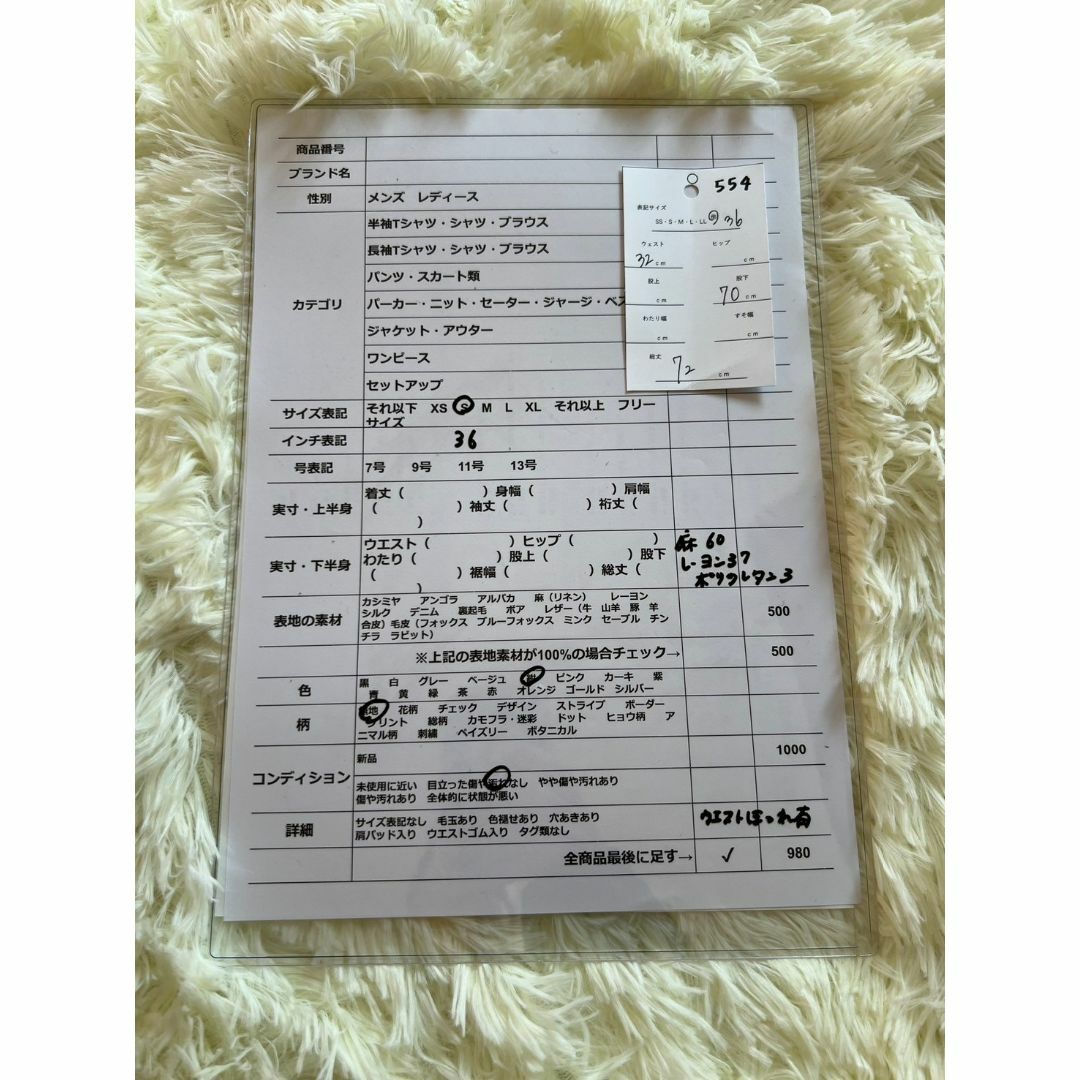 商品番号
ブランド名
性別 メンズ レディース
カテゴリ
半袖Tシャツ・シャツ・ブラウス
長袖Tシャツ・シャツ・ブラウス
パンツ・スカート類
パーカー・ニット・セーター・ジャージ・ベス
ジャケット・アウター
ワンピース
セットアップ
サイズ表記 それ以下 XS S M L XL それ以上 フリー
サイズ
インチ表記 36
号表記 7号 9号 11号 13号
実寸・上半身
着丈（ ）身幅（ ）肩幅
（ ）袖丈（ ）裄丈（
）
実寸・下半身
ウエスト（ ）ヒップ（ ）
わたり（ ）股上（ ）股下
（ ）裾幅（ ）総丈（
）
麻 60
レーヨン37
ポリウレタン3
表地の素材
カシミヤ アンゴラ アルパカ 麻（リネン） レーヨン
シルク デニム 裏起毛 ボア レザー（牛 山羊 豚 羊
合皮）毛皮（フォックス ブルーフォックス ミンク セーブル チン
チラ ラビット）
500
※上記の表地素材が100%の場合チェック→ 500
色
黒 白 グレー ベージュ ピンク カーキ 紫
青 黄 緑 茶 赤 オレンジ ゴールド シルバー
柄
地 花柄 チェック デザイン ストライプ ボーダー
プリント 総柄 カモフラ・迷彩 ドット ヒョウ柄 ア
ニマル柄 刺繍 ペイズリー ボタニカル
コンディション
新品 1000
未使用に近い 目立った傷や汚れなし やや傷や汚れあり
傷や汚れあり 全体的に状態が悪い
詳細
サイズ表記なし 毛玉あり 色褪せあり 穴あきあり
肩パッド入り ウエストゴム入り タグ類なし
ウエストほつれ有
全商品最後に足す→ ✓ 980
554
表記サイズ
SS・S・M・L・LL 36
ウェスト ヒップ
32cm cm
股上 股下
cm 70cm
わたり幅 すそ幅
cm cm
総丈
72 cm